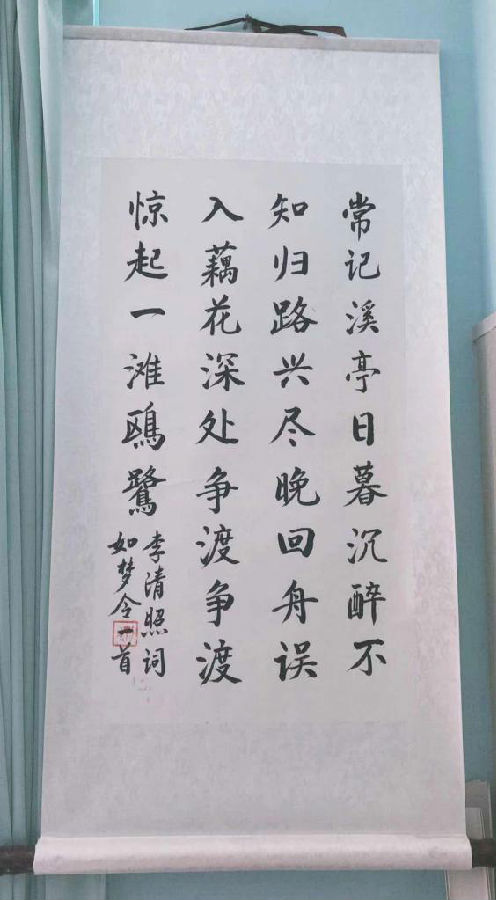 常记溪亭日暮沉醉不
知归路兴尽晚回舟误
入藕花深处争渡争渡
惊起一滩鸥鹭
李清照词
如梦令一首